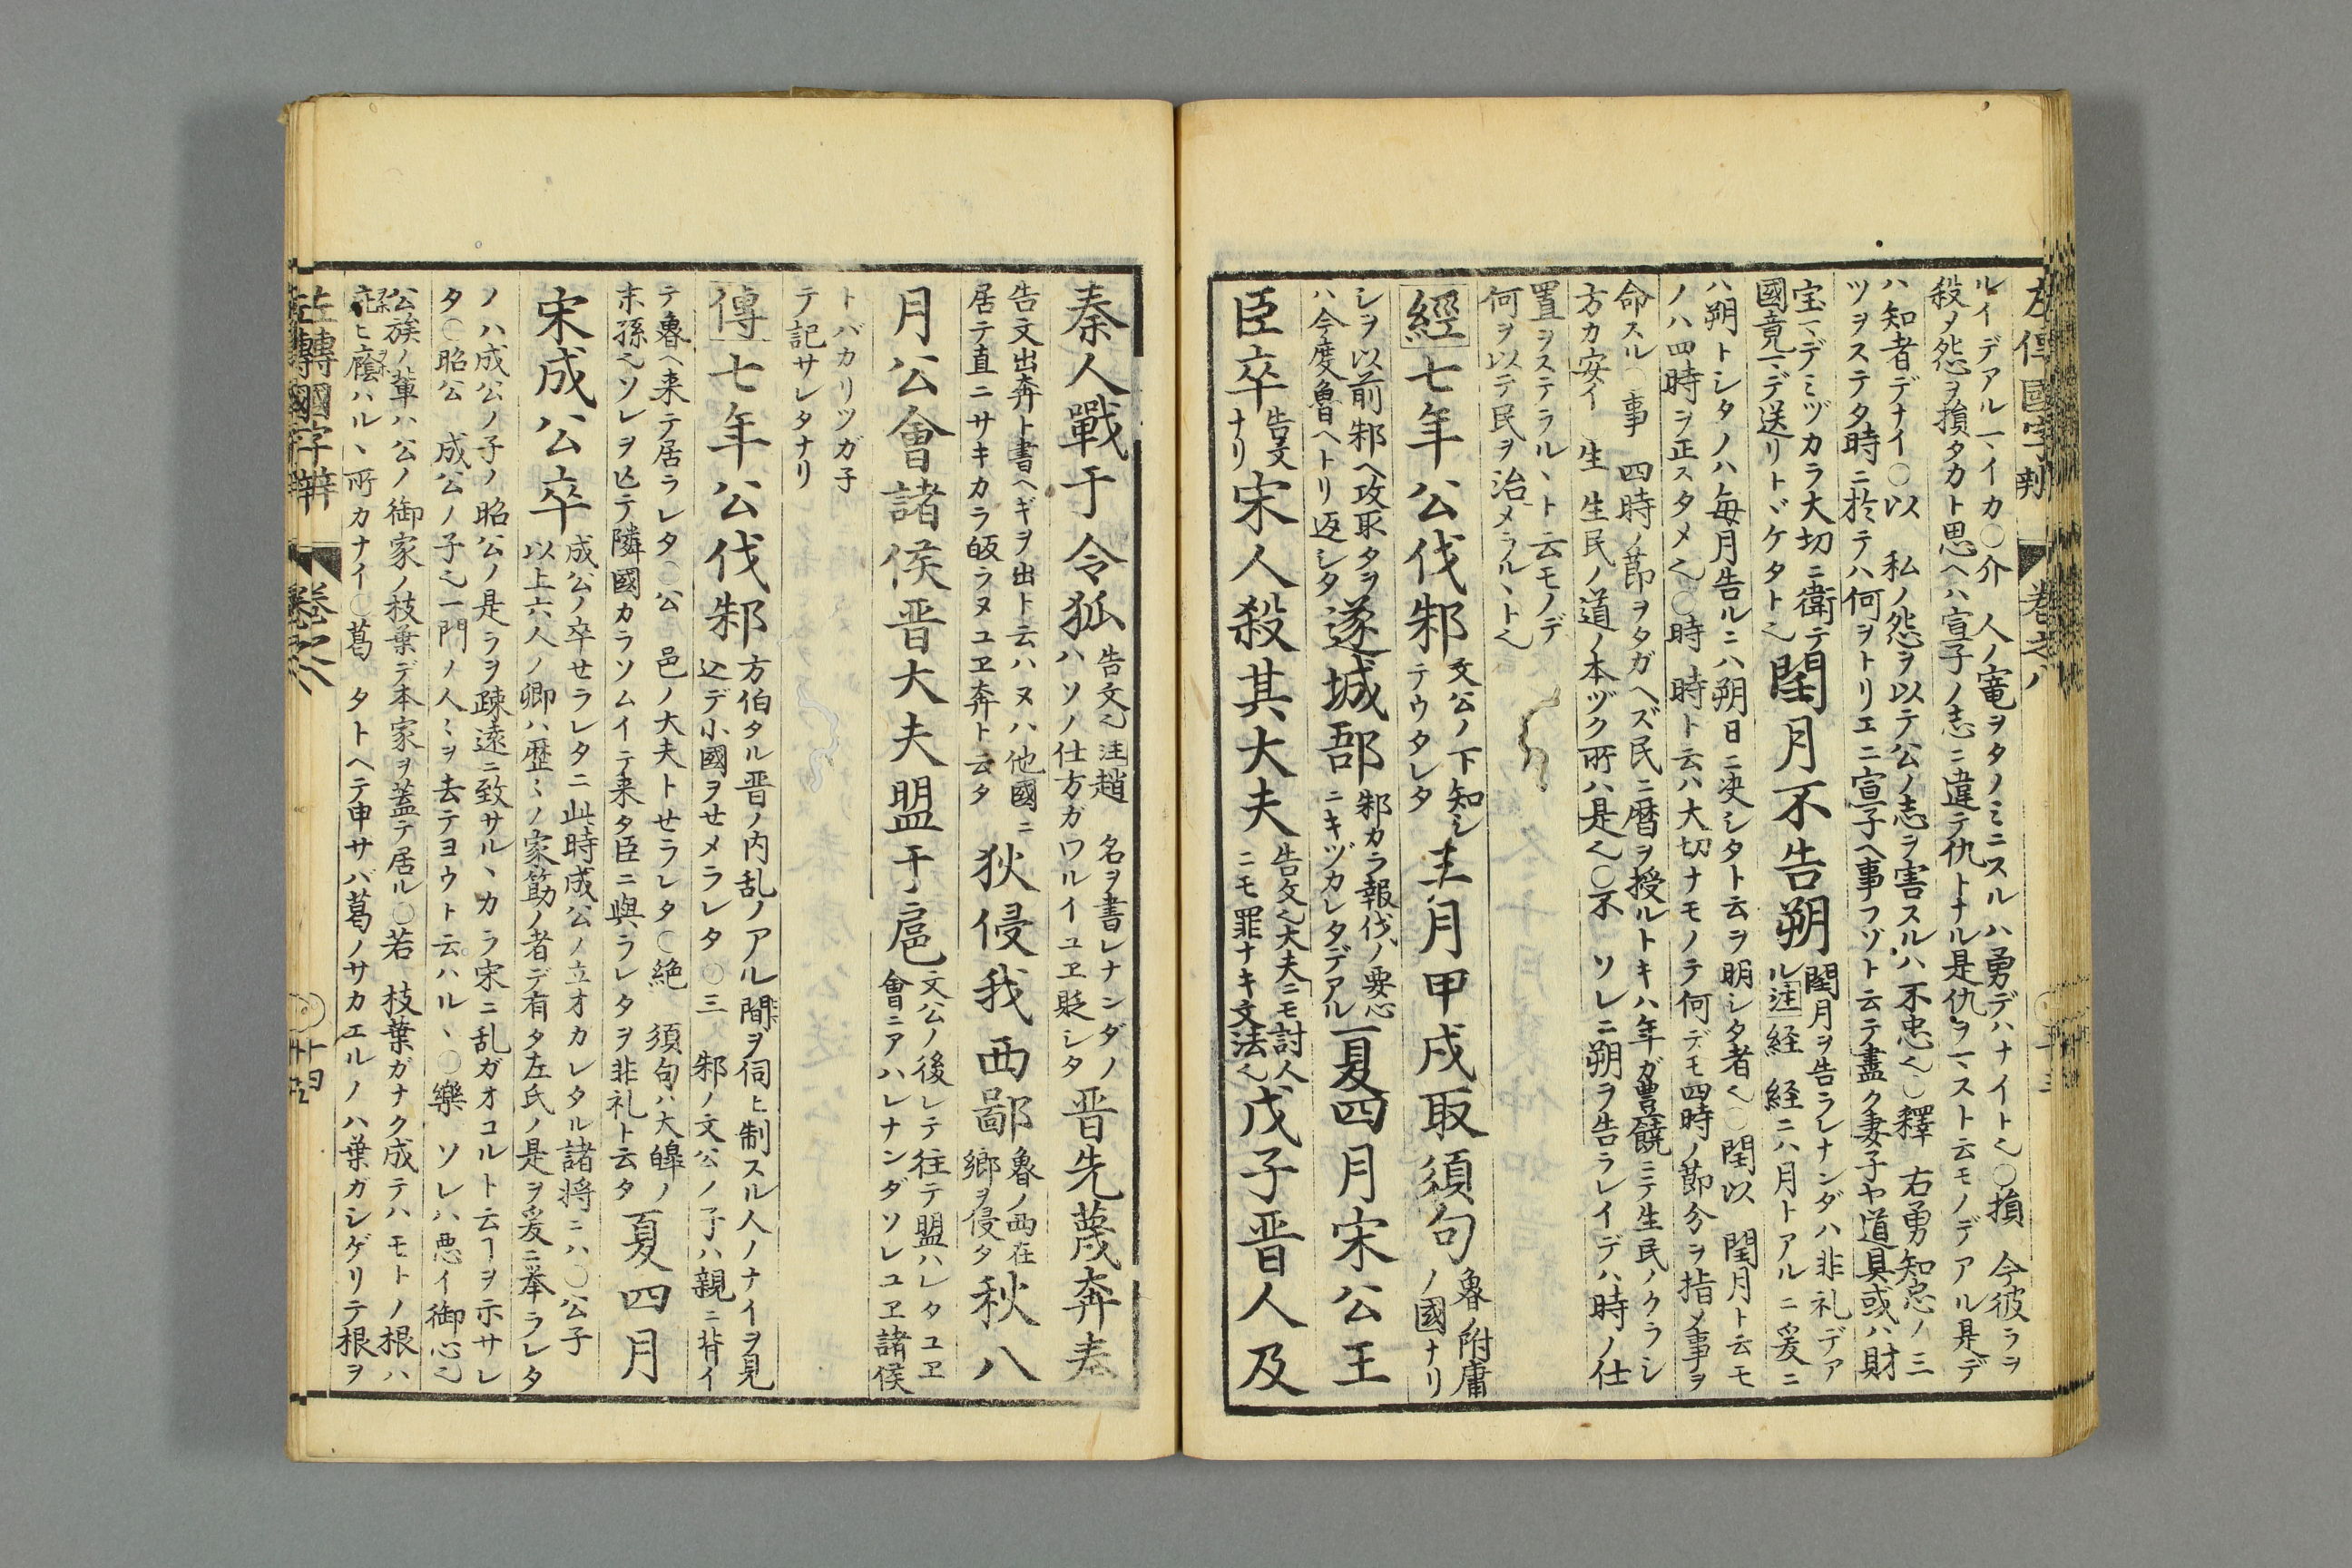 左傳國字辨 卷之八
ルイデアル一、イカ○介 人ノ竜ヲタノミニスルハ勇デハナイト乄○損 今彼ラヲ
殺ノ怨ヲ損タカト思ヘハ宣子ノ志ニ違テ仇トナル是仇ヲ一、スト云モノデアル是デ
ハ知者デナイ○以 私ノ怨ヲ以テ公ノ志ヲ害スルハ不忠乄○釋 右勇知忠ノ三
ツヲステタ時ニ於テハ何ヲトリエニ宣子ヘ事フゾト云テ盡ク妻子ヤ道具或ハ財
宝一、デミヅカラ大切ニ衛テ
國竟一、デ送リトヾケタト乄
閏月不告朔
閏月ヲ告ラレナンダハ非礼デア
ル注経 経ニハ月トアルニ爰ニ
ハ朔トシタノハ毎月告ルニハ朔日ニ决シタト云ヲ明シタ者乄○閏以 閏月ト云モ
ノハ四時ヲ正スタメ乄○時 時ト云ハ大切ナモノテ何デモ四時ノ節分ヲ指メ事ヲ
命スル○事 四時ノ節ヲタガヘズ民ニ暦ヲ授ルトキハ年ガ豊饒ニテ生民ノクラシ
方カ安イ 生 生民ノ道ノ本ヅク所ハ是乄○不 ソレニ朔ヲ告ラレイデハ時ノ仕
置ヲステラル、ト云モノデ
何ヲ以テ民ヲ治メラル、ト乄
經七年公伐邾
文公ノ下知シ
テウタレタ
三月甲戌取須句
魯ノ附庸
ノ國ナリ
シヲ以前邾ヘ攻取タヲ
ハ今度魯ヘトリ返シタ
遂城郚
邾カラ報伐ノ要心
ニキヅカレタデアル
夏四月宋公王
臣卒
告文
ナリ
宋人殺其大夫
告文乄大夫ニモ討人
ニモ罪ナキ文法乄
戊子晋人及
秦人戰于令狐
告文乄注趙 名ヲ書レナンダノ
ハソノ仕方ガワルイユヱ貶シタ
晋先蔑奔秦
告文出奔ト書ヘギヲ出ト云ハヌハ他國ニ
居テ直ニサキカラ皈ラヌユヱ奔ト云タ
狄侵我西鄙
魯ノ西在
郷ヲ侵タ
秋八
月公會諸侯晋大夫盟于扈
文公ノ後レテ往テ盟ハレタユヱ
會ニアハレナンダソレユヱ諸侯
トバカリツガ子
テ記サレタナリ
傳七年公伐邾
方伯タル晋ノ内乱ノアル間ヲ伺ヒ制スル人ノナイヲ見
込デ小國ヲせメラレタ○三 邾ノ文公ノ子ハ親ニ背イ
テ魯ヘ来テ居ラレタ○公 邑ノ大夫トせラレタ○絶 須句ハ大皥ノ
末孫乄ソレヲ亾テ隣國カラソムイテ来タ臣ニ與ラレタヲ非礼ト云タ
夏四月
宋成公卒
成公ノ卒せラレタニ此時成公ノ立オカレタル諸将ニハ○公子
以上六人ノ卿ハ歴〻ノ家筋ノ者デ有タ左氏ノ是ヲ爰ニ挙ラレタ
ノハ成公ノ子ノ昭公ノ是ラヲ疎遠ニ致サル、カラ宋ニ乱ガオコルト云ヿヲ示サレ
タ○昭公 成公ノ子乄一門ノ人〻ヲ去テヨウト云ハル、○樂 ソレハ悪イ御心乄
公族ノ輩ハ公ノ御家ノ枝葉デ本家ヲ蓋テ居ル○若 枝葉ガナク成テハモトノ根ハ
庇ヒ廕ハル、所カナイ○葛 タトヘテ申サバ葛ノサカエルノハ葉ガシゲリテ根ヲ
左傳國字辨 卷之八 廿四